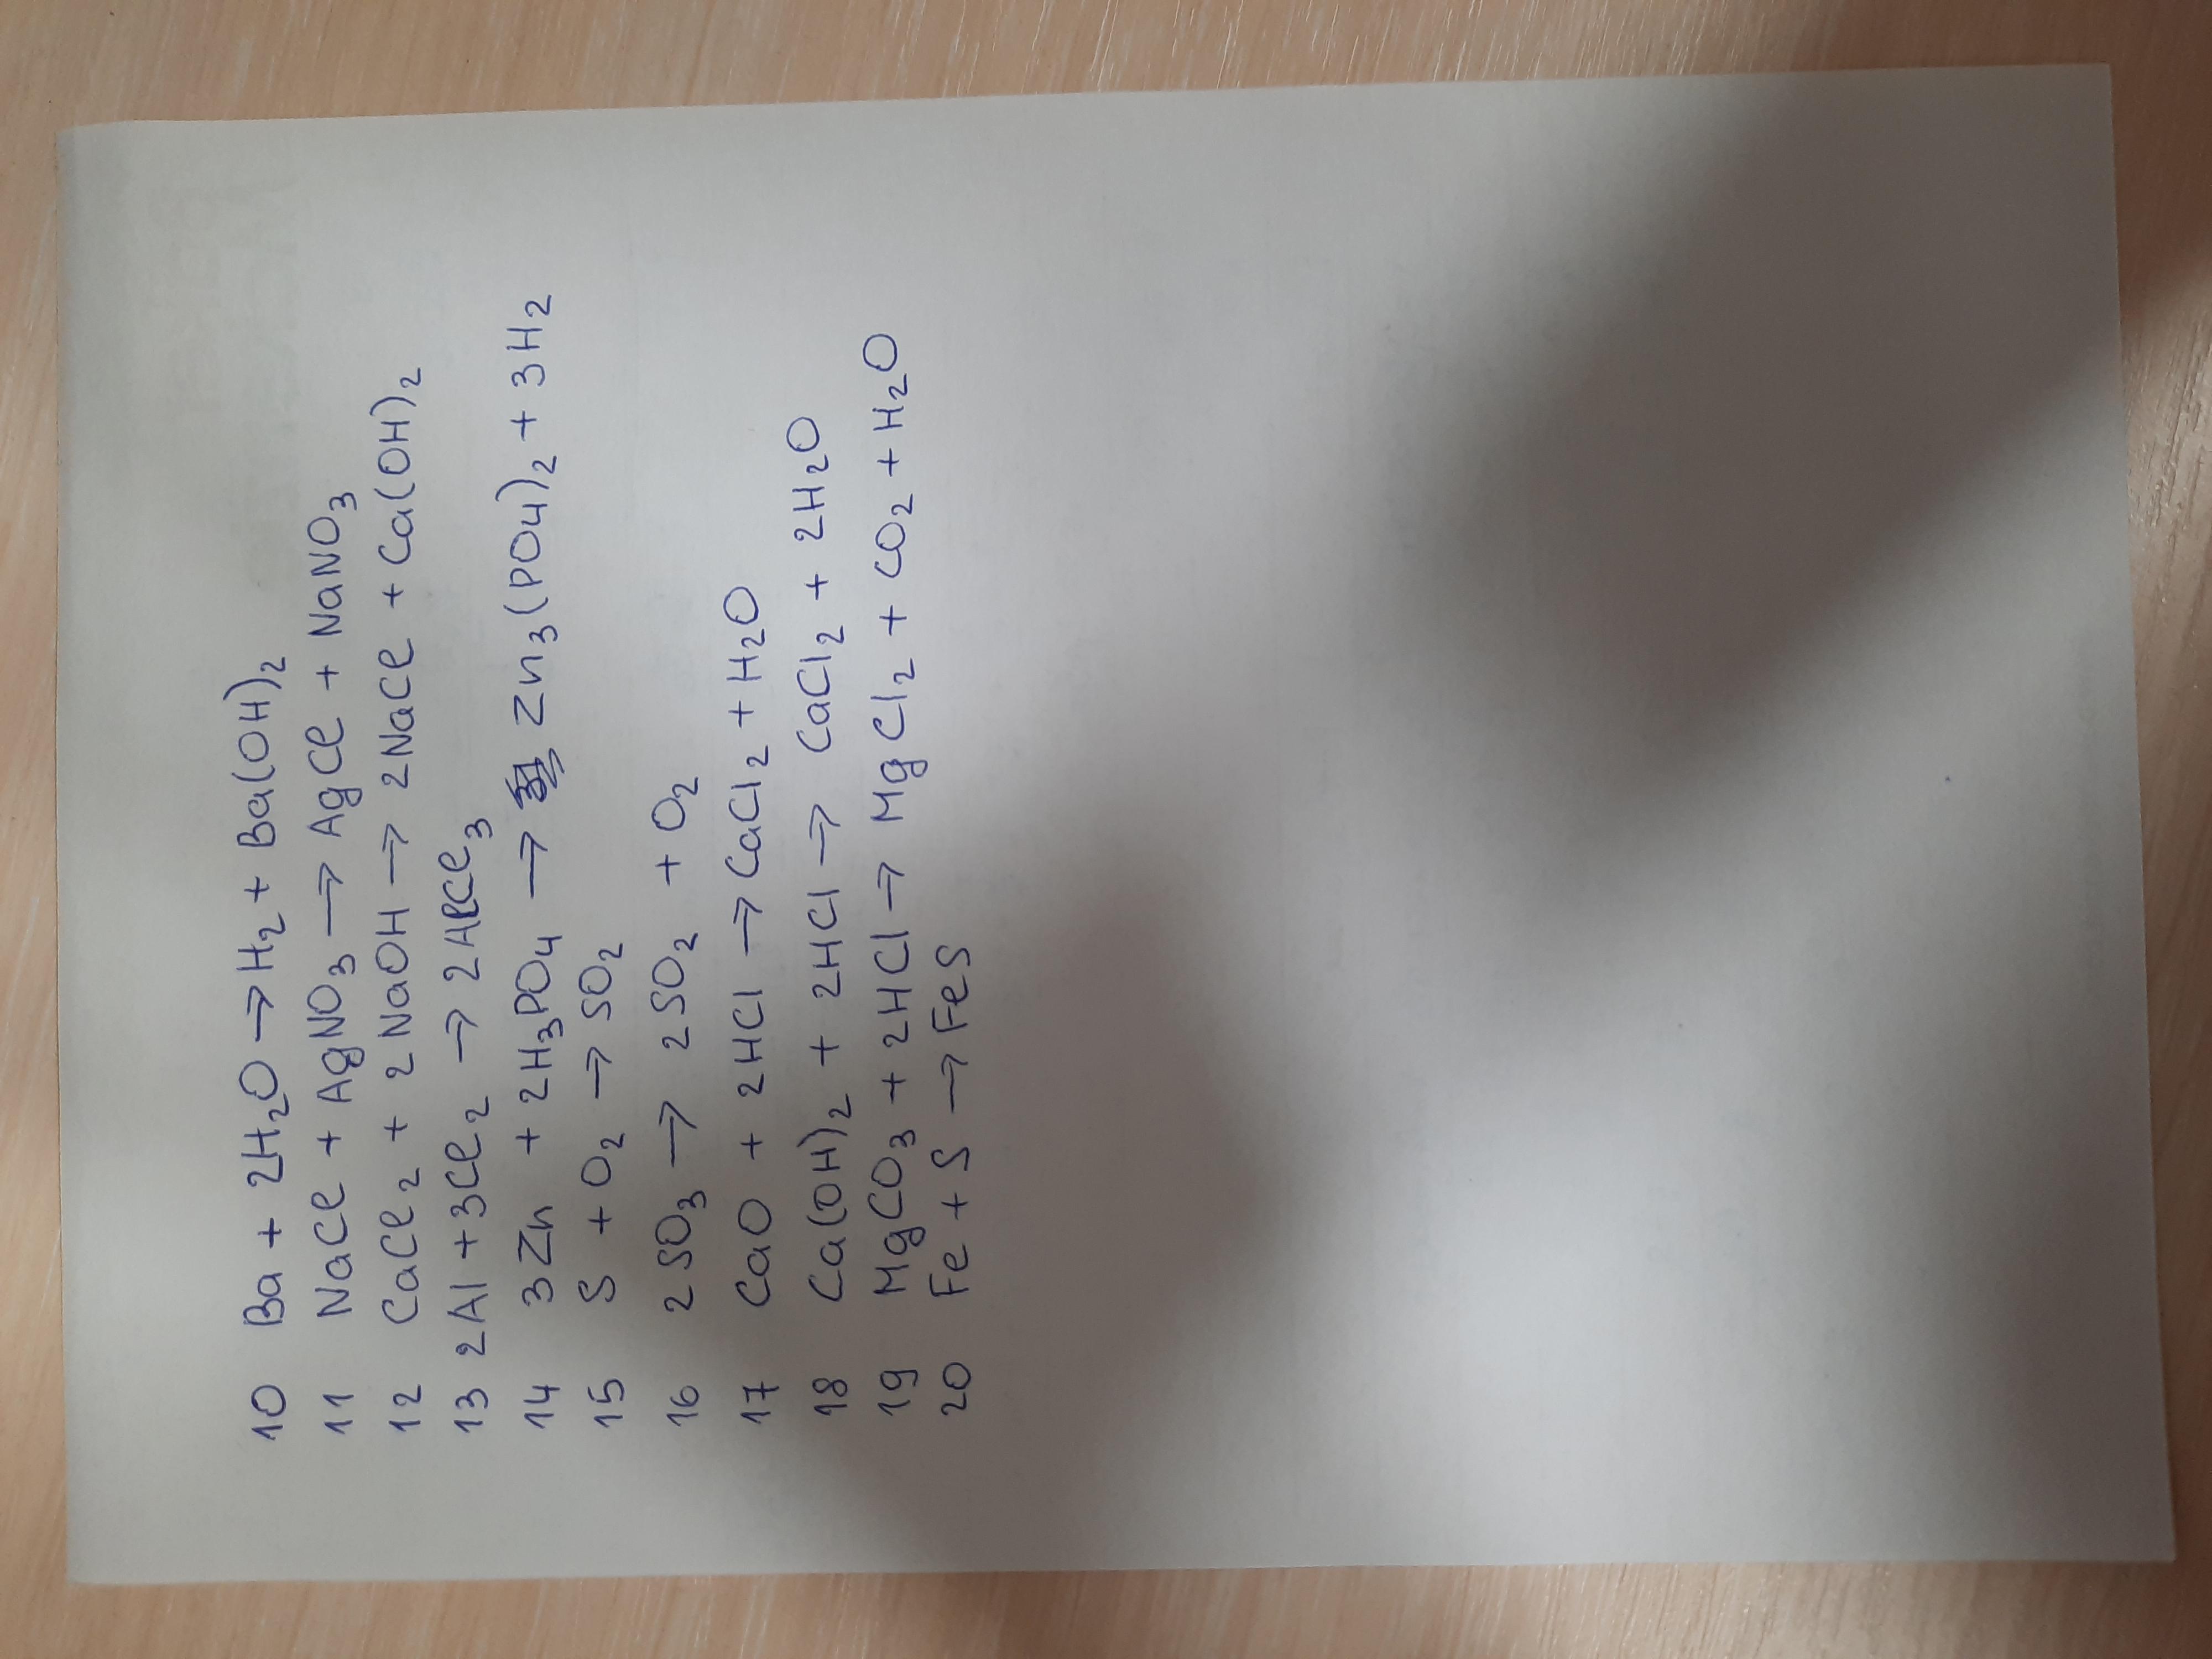 10 Ba + 2H₂O → H₂ + Ba(OH)₂
11 NaCl + AgNO₃ → AgCl + NaNO₃
12 CaCl₂ + 2NaOH → 2NaCl + Ca(OH)₂
13 2Al + 3Cl₂ → 2AlCl₃
14 3Zn + 2H₃PO₄ → Zn₃(PO₄)₂ + 3H₂
15 S + O₂ → SO₂
16 2SO₃ → 2SO₂ + O₂
17 CaO + 2HCl → CaCl₂ + H₂O
18 Ca(OH)₂ + 2HCl → CaCl₂ + 2H₂O
19 MgCO₃ + 2HCl → MgCl₂ + CO₂ + H₂O
20 Fe + S → FeS